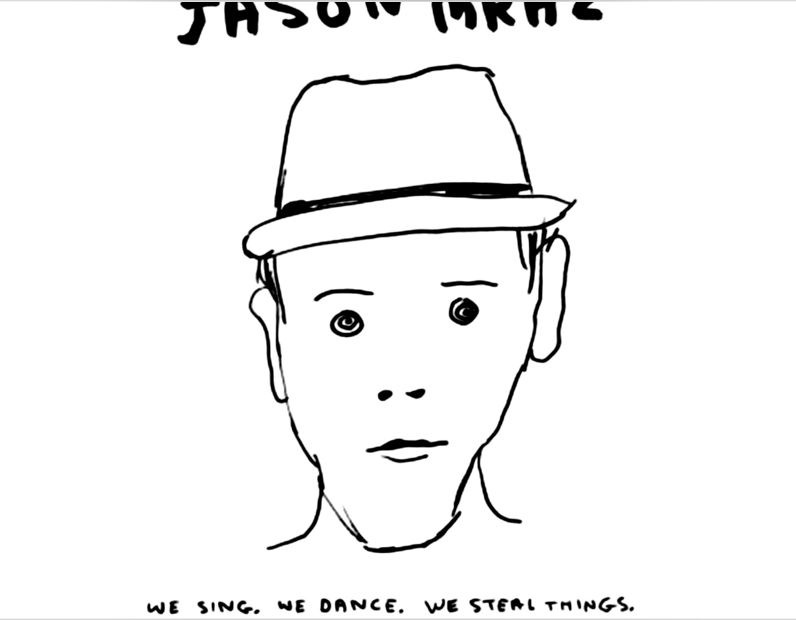 JASON MRAZ
WE SING. WE DANCE. WE STEAL THINGS.